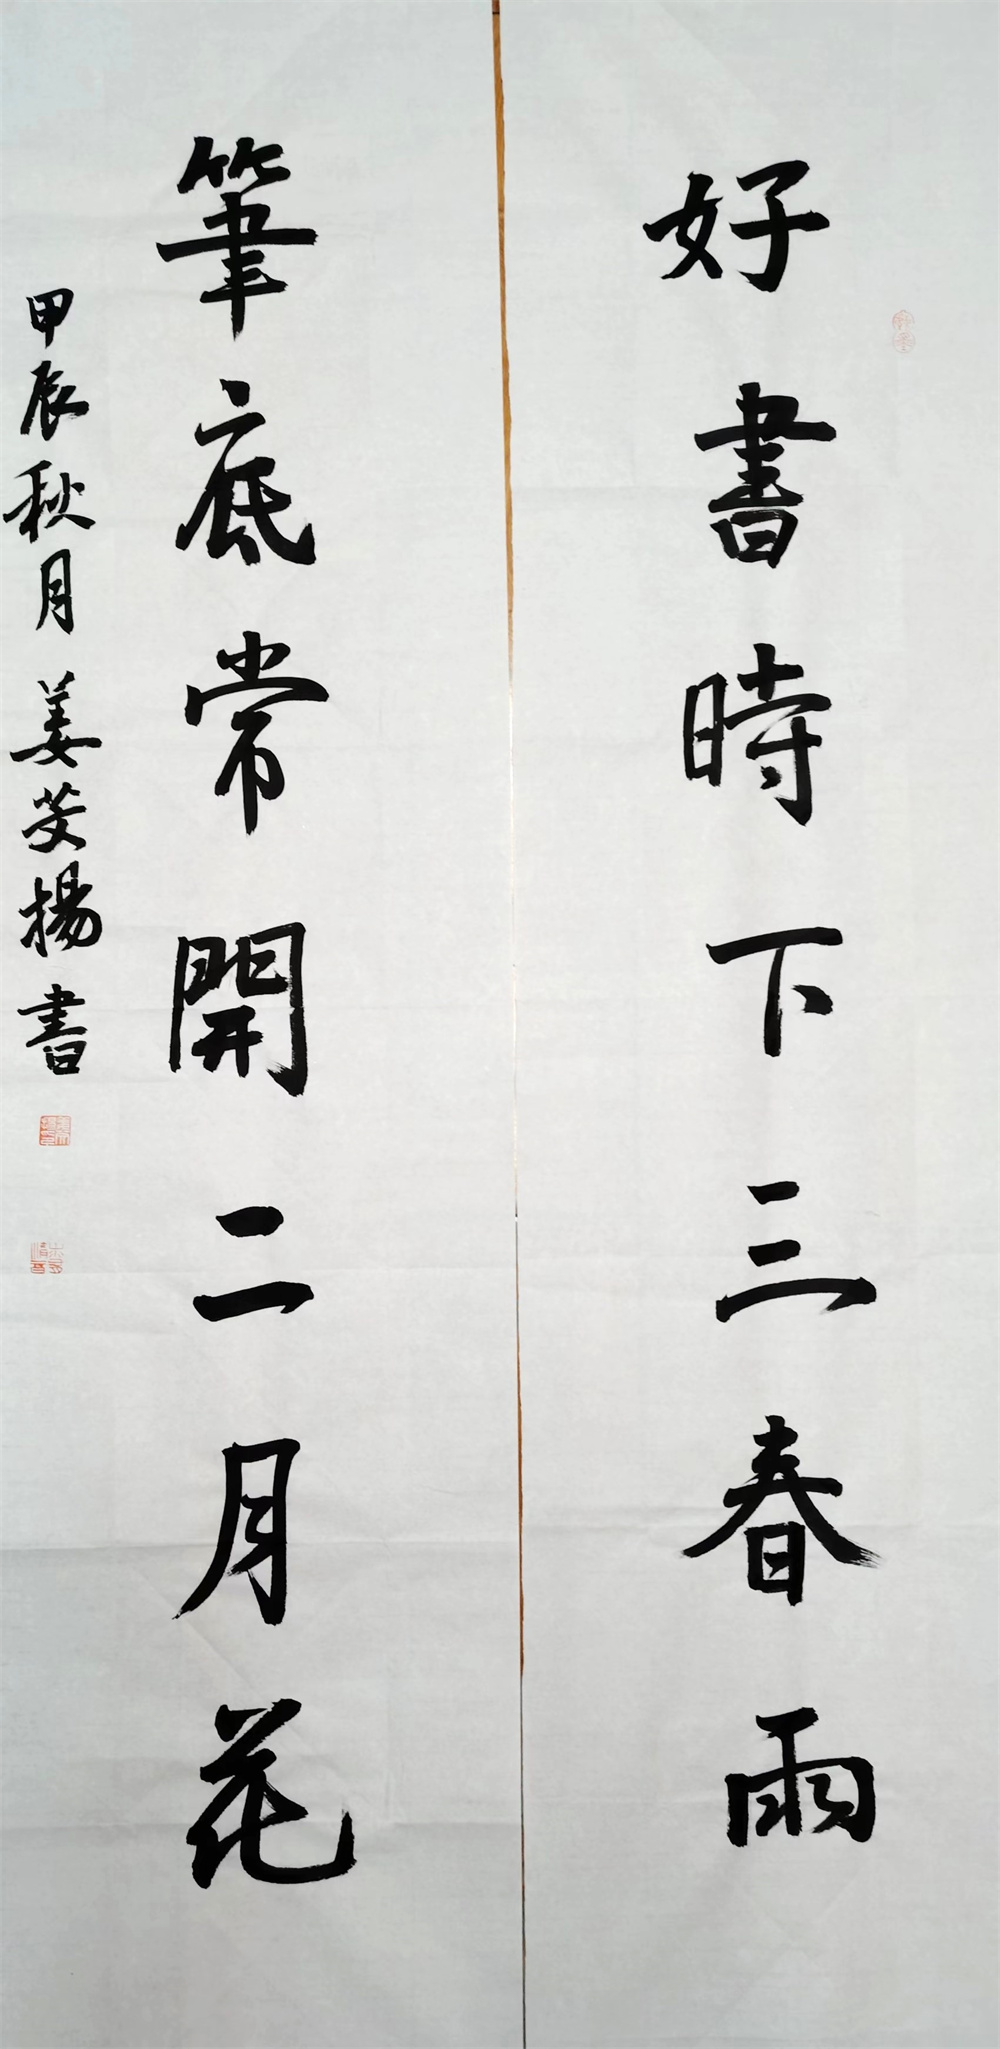 好書時下三春雨
筆底常開二月花
甲辰秋月姜 揚書